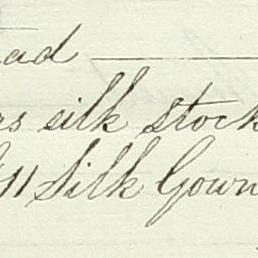 ad
rs silk stock
11 Silk Gown